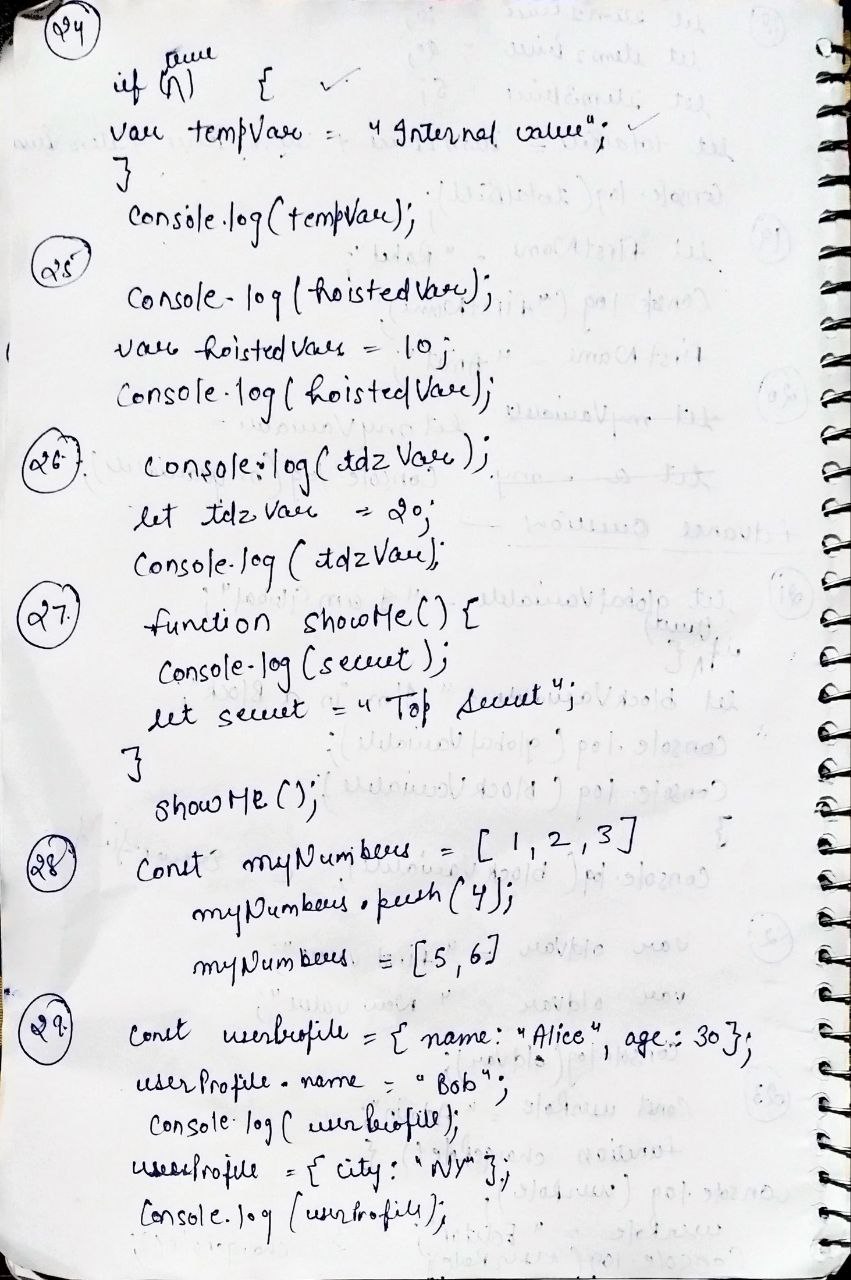 24
if (true) { ✓
var tempVar = "Internal value"; ✓
}
Console.log(tempVar);
25
Console.log(hoistedVar);
var hoistedVar = 10;
Console.log(hoistedVar);
26. Console.log(tdzVar);
let tdzVar = 20;
Console.log(tdzVar);
27. function showMe() {
Console.log(secret);
let secret = "Top Secret";
}
showMe();
28 Const myNumbers = [1, 2, 3]
myNumbers.push(4);
myNumbers = [5, 6]
29. Const userProfile = { name: "Alice", age: 30 };
userProfile.name = "Bob";
Console.log(userProfile);
userProfile = { city: "NY" };
Console.log(userProfile);